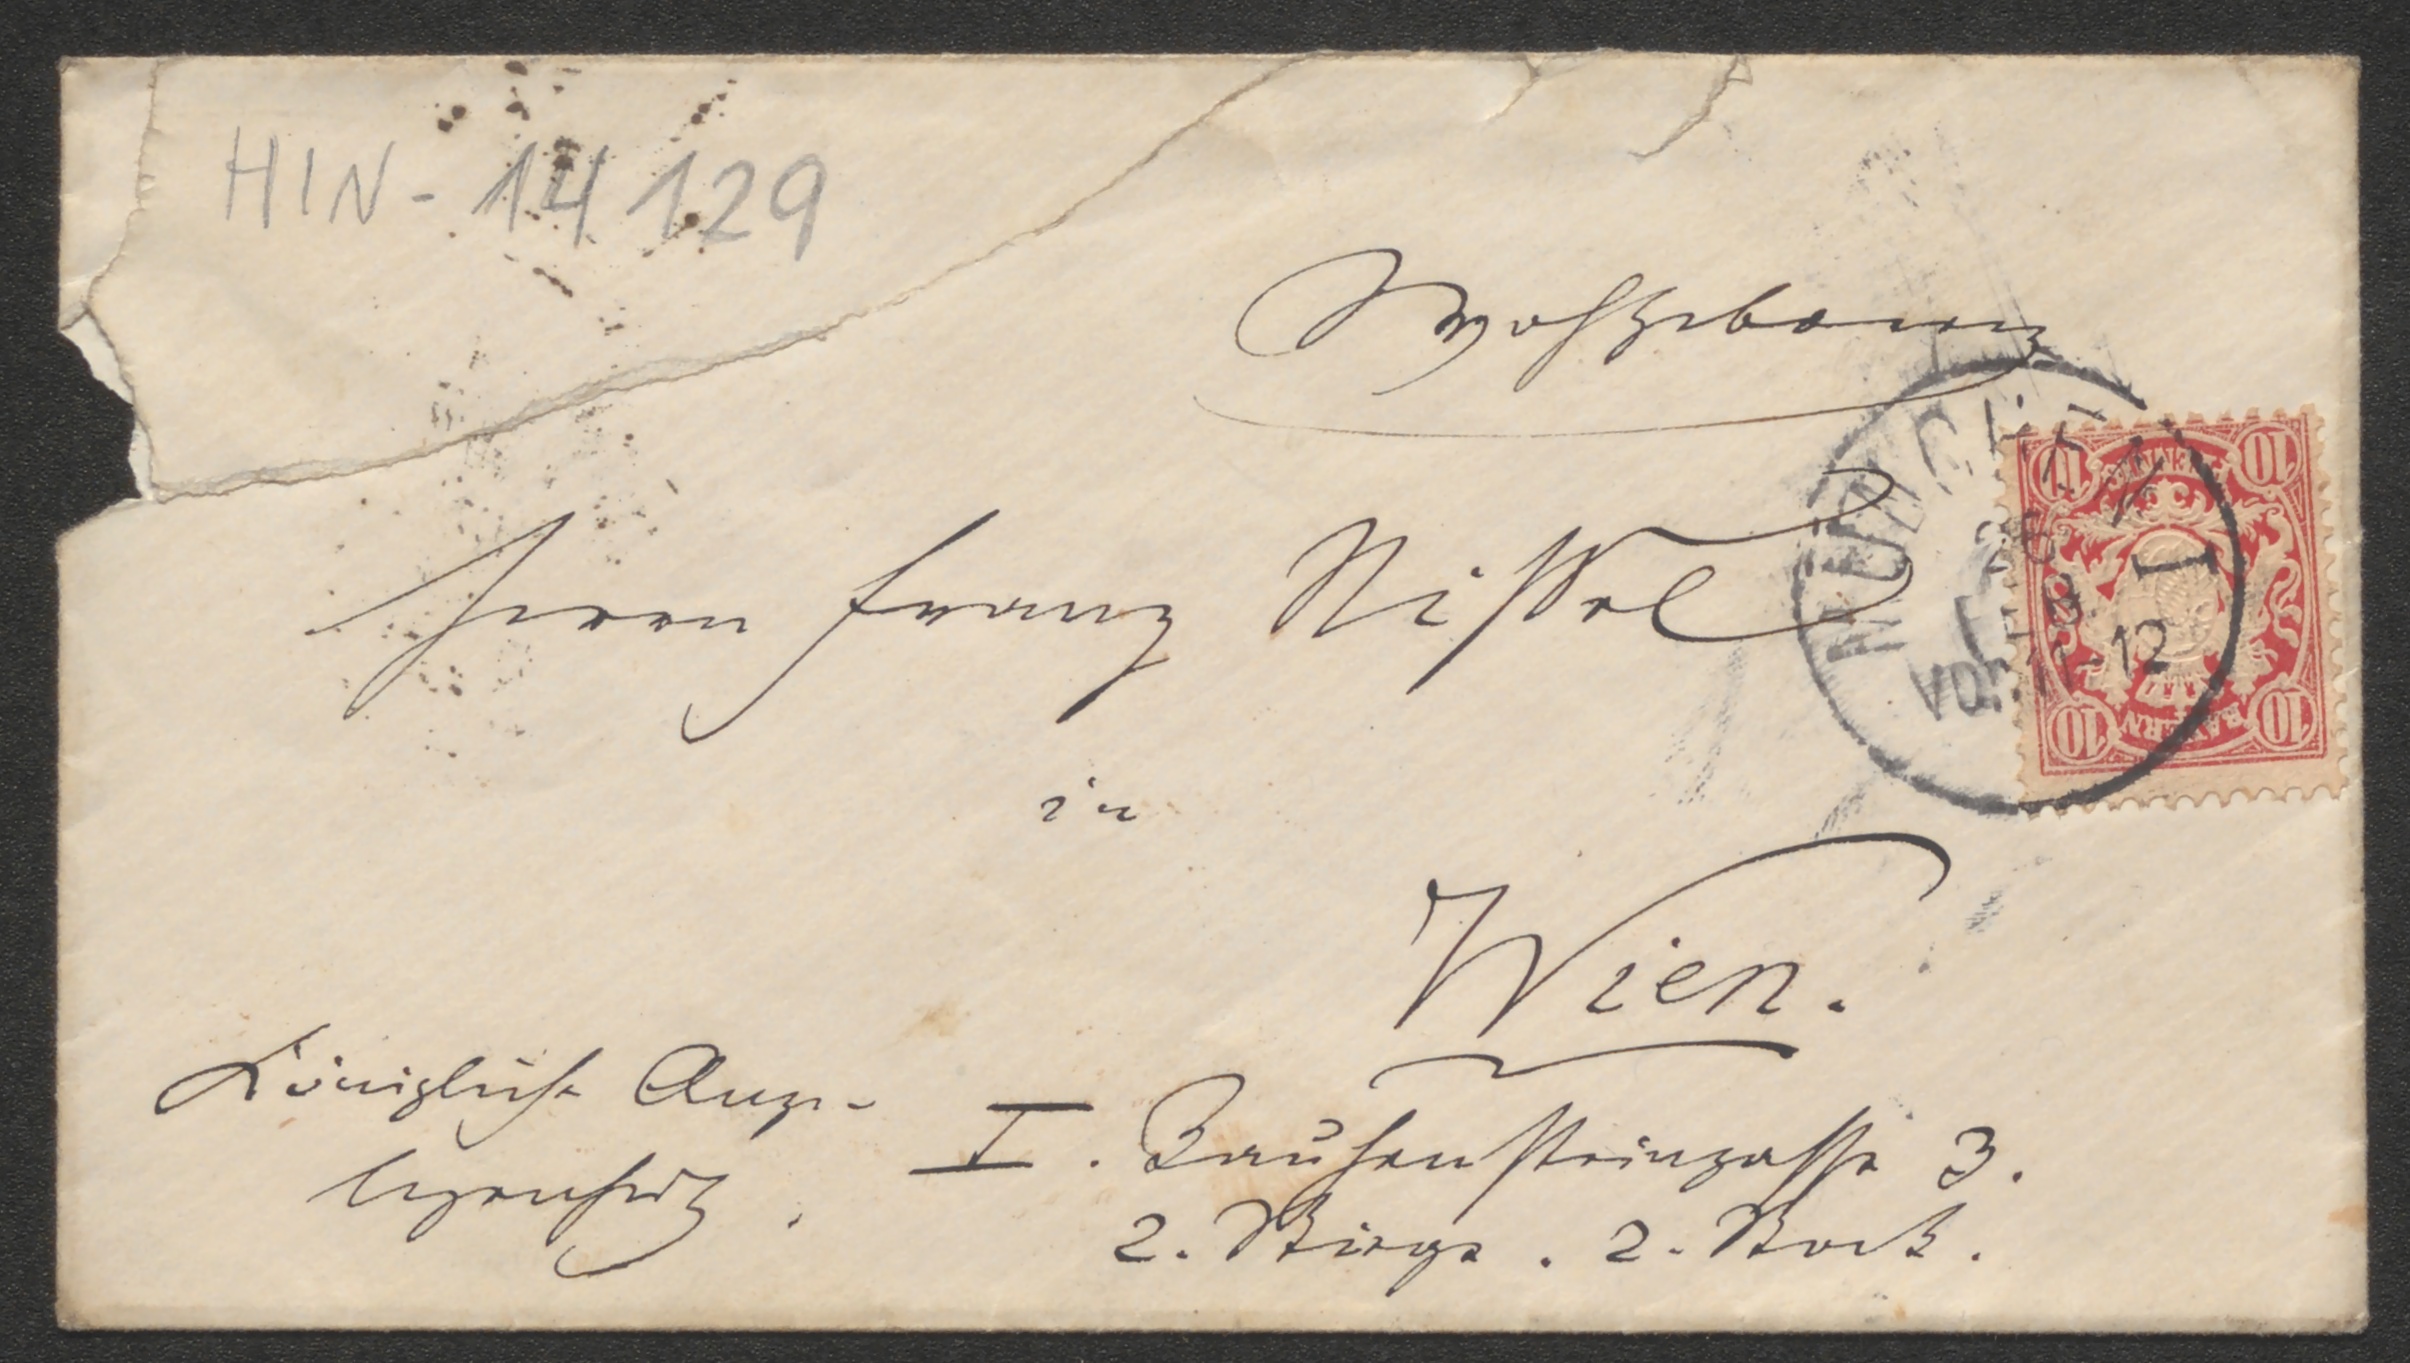 HIN-14129
Wohlgeboren
Herrn Franz Nissel
in
Wien.
Königliche Ange-
legenheit.
I. Rauhensteingasse 3.
2. Stiege. 2. Stock.
MÜNCHEN I
26
8
VOR. 11-12
10 10
BAYERN
10 10